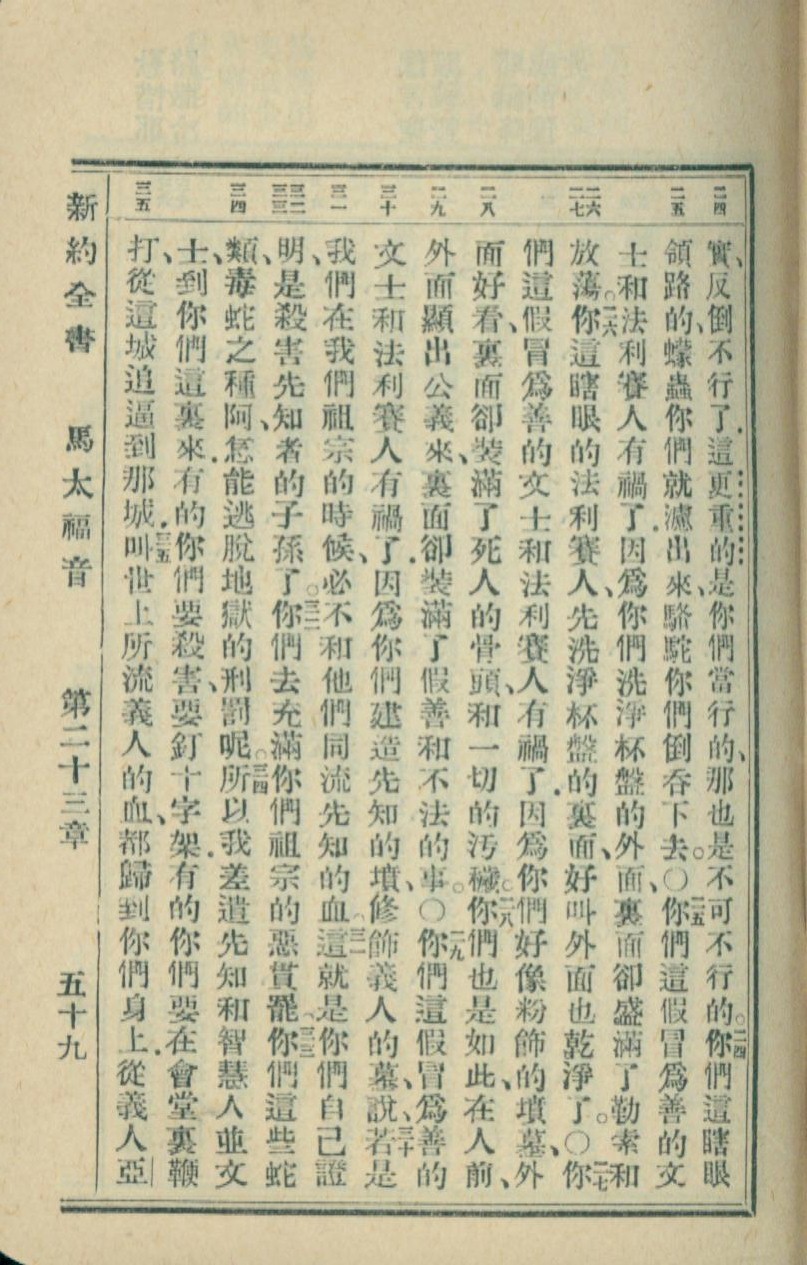 二四 二五 二六 二七 二八 二九 三十 三一 三二 三三 三四 三五
實、反倒不行了．這更重的是你們當行的、那也是不可不行的。二四你們這瞎眼
領路的、蠓蟲你們就濾出來、駱駝你們倒吞下去。○二五你們這假冒爲善的文
士和法利賽人有禍了．因爲你們洗淨杯盤的外面、裏面卻盛滿了勒索和
放蕩。二六你這瞎眼的法利賽人、先洗淨杯盤的裏面、好叫外面也乾淨了。○二七你
們這假冒爲善的文士和法利賽人有禍了．因爲你們好像粉飾的墳墓、外
面好看、裏面卻裝滿了死人的骨頭、和一切的汚穢。二八你們也是如此、在人前、
外面顯出公義來、裏面卻裝滿了假善和不法的事。○二九你們這假冒爲善的
文士和法利賽人有禍了．因爲你們建造先知的墳、修飾義人的墓、說、三十若是
我們在我們祖宗的時候、必不和他們同流先知的血、三一這就是你們自己證
明、是殺害先知者的子孫了。三二你們去充滿你們祖宗的惡貫罷。三三你們這些蛇
類、毒蛇之種阿、怎能逃脫地獄的刑罰呢。三四所以我差遣先知和智慧人並文
士、到你們這裏來．有的你們要殺害、要釘十字架．有的你們要在會堂裏鞭
打、從這城追逼到那城．三五叫世上所流義人的血、都歸到你們身上．從義人亞
新約全書 馬太福音 第二十三章 五十九